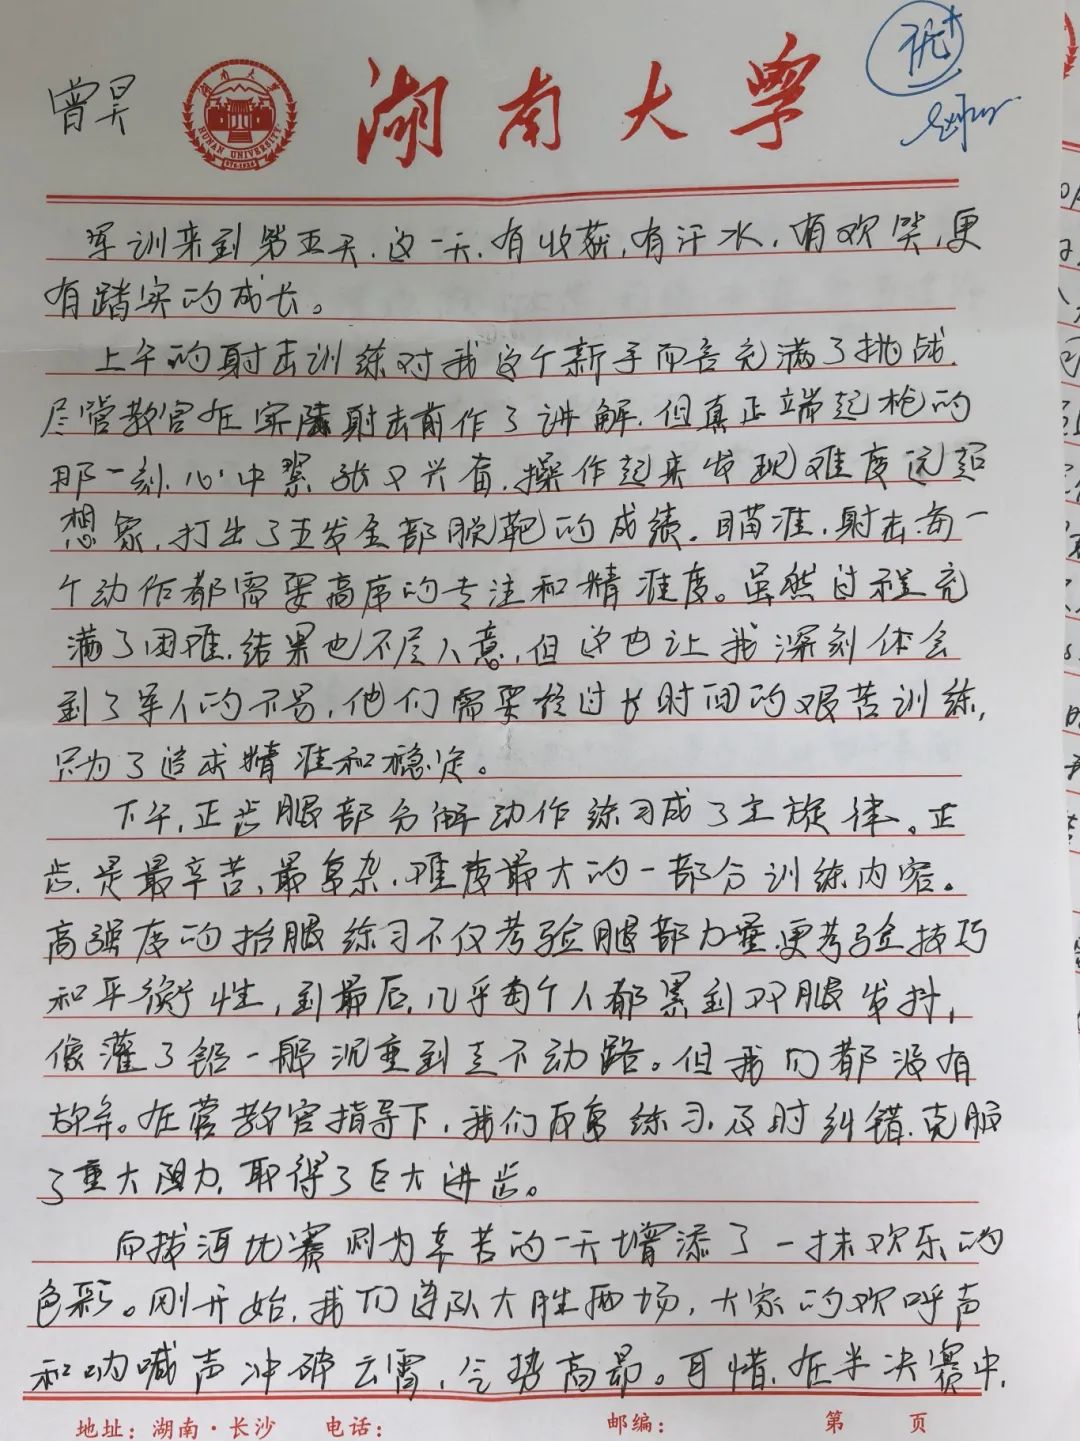 曾昊
湖南大学
HUNAN UNIVERSITY
优+
军训来到第五天,这一天,有收获,有汗水,有欢笑,更
有踏实的成长。
上午的射击训练对我这个新手而言充满了挑战.
尽管教官在实际射击前作了讲解,但真正端起枪的
那一刻,心中紧张又兴奋,操作起来发现难度远超
想象,打出了五发全部脱靶的成绩。瞄准,射击,每一
个动作都需要高度的专注和精准度。虽然过程充
满了困难,结果也不尽人意,但这也让我深刻体会
到了军人的不易,他们需要经过长时间的艰苦训练,
只为了追求精准和稳定。
下午,正步腿部分解动作练习成了主旋律。正
步,是最辛苦、最复杂,难度最大的一部分训练内容。
高强度的抬腿练习不仅考验腿部力量,更考验技巧
和平衡性,到最后,几乎每个人都累到双腿发抖,
像灌了铅一般沉重到走不动路。但我们都没有
放弃。在营教官指导下,我们反复练习,及时纠错,克服
了重大阻力,取得了巨大进步。
而拔河比赛则为辛苦的一天增添了一抹欢乐的
色彩。刚开始,我们连队大胜两场,大家的欢呼声
和呐喊声冲破云霄,气势高昂。可惜,在半决赛中,
地址:湖南·长沙 电话: 邮编: 第 页